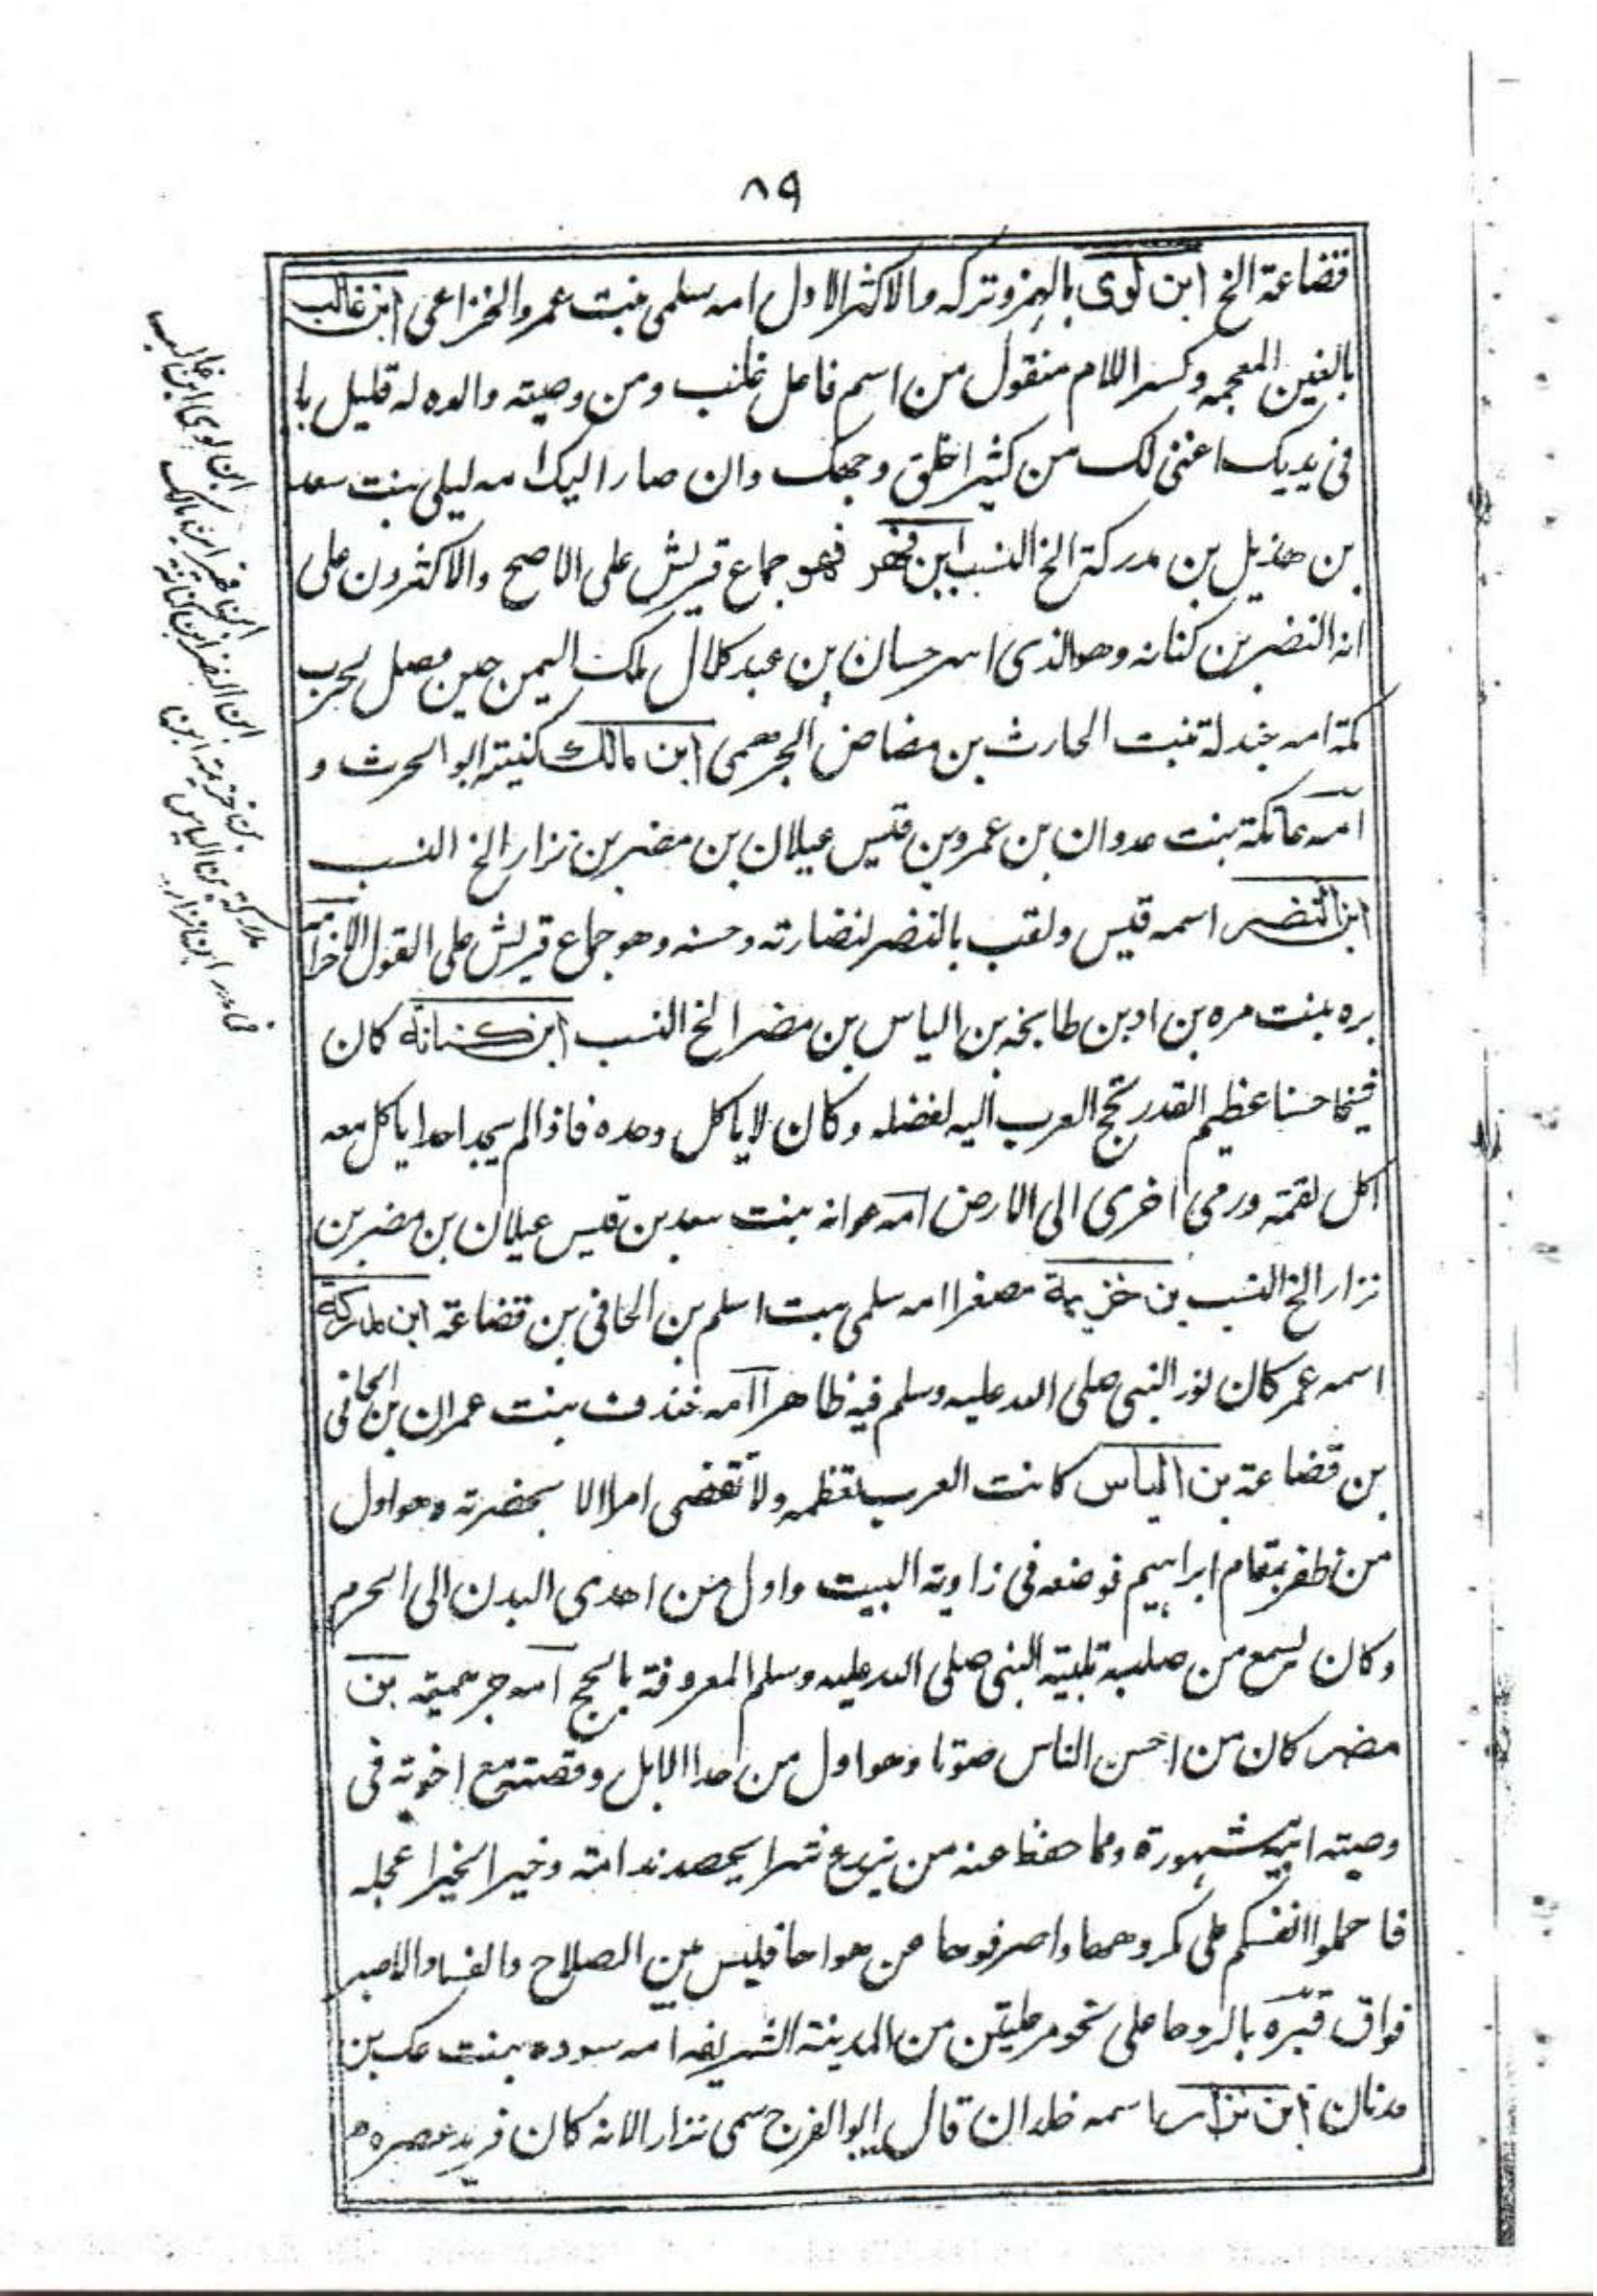 ٨٩
قضاعة الخ ابن لوى بالهمز وتركه والاكثر الاول امه سلمى بنت عمر والخزاعى ابن غالب
بالغين المعجمه وكسر اللام منقول من اسم فاعل غلب ومن وصيته والده له قليل ما
فى يديك اغنى لك من كثير اخلق وجهك وان صار اليك امه ليلى بنت سعد
بن هذيل بن مدركة الخ النسب ابن فهر فهو جماع قريش على الاصح والاكثرون على
انه النضر بن كنانه وهو الذى اسر حسان بن عبد كلال ملك اليمن حين وصل لحرب
مكة امه جندلة بنت الحارث بن مضاض الجرهمى ابن مالك كنيته ابو الحرث و
امه عاتكة بنت عدوان بن عمرو بن قيس عيلان بن مضر بن نزار الخ النسب
ابن النضر اسمه قيس ولقب بالنضر لنضارته وحسنه وهو جماع قريش على القول الاخر امه
بره بنت مره بن اد بن طابخه بن الياس بن مضر الخ النسب ابن كنانة كان
شيخا حسنا عظيم القدر تحج العرب اليه لفضله وكان لا ياكل وحده فاذا لم يجد احدا ياكل معه
اكل لقمة ورمى اخرى الى الارض امه عوانه بنت سعد بن قيس عيلان بن مضر بن
نزار الخ النسب بن خزيمة مصغرا امه سلمى بنت اسلم بن الحافى بن قضاعة ابن مدركة
اسمه عمر كان نور النبى صلى الله عليه وسلم فيه ظاهرا امه خندف بنت عمران بن الحافى
بن قضاعة بن الياس كانت العرب تعظمه ولا تقضى امرا الا بحضرته وهو اول
من ظفر بمقام ابراهيم فوضعه فى زاوية البيت واول من اهدى البدن الى الحرم
وكان يسمع من صلبه تلبية النبى صلى الله عليه وسلم المعروفة بالحج امه جرهمية بن
مضر كان من احسن الناس صوتا وهو اول من حدا الابل وقصته مع اخوته فى
وصيته ابيه مشهورة ومما حفظ عنه من يزرع شرا يحصد ندامته وخير الخير اعجله
فاحملوا انفسكم على مكروهها واصرفوها عن هواها فليس بين الصلاح والفساد الا صبر
فواق قبره بالروحا على نحو مرحلتين من المدينة الشريفه امه سوده بنت عك بن
عدنان ابن نزار اسمه خلدان قال ابو الفرج سمى نزار لانه كان فريد عصره
ابن لوى ابن غالب
ابن فهر ابن مالك
ابن النضر ابن كنانة
بن خزيمة ابن
مدركة بن الياس
بن مضر ابن نزار